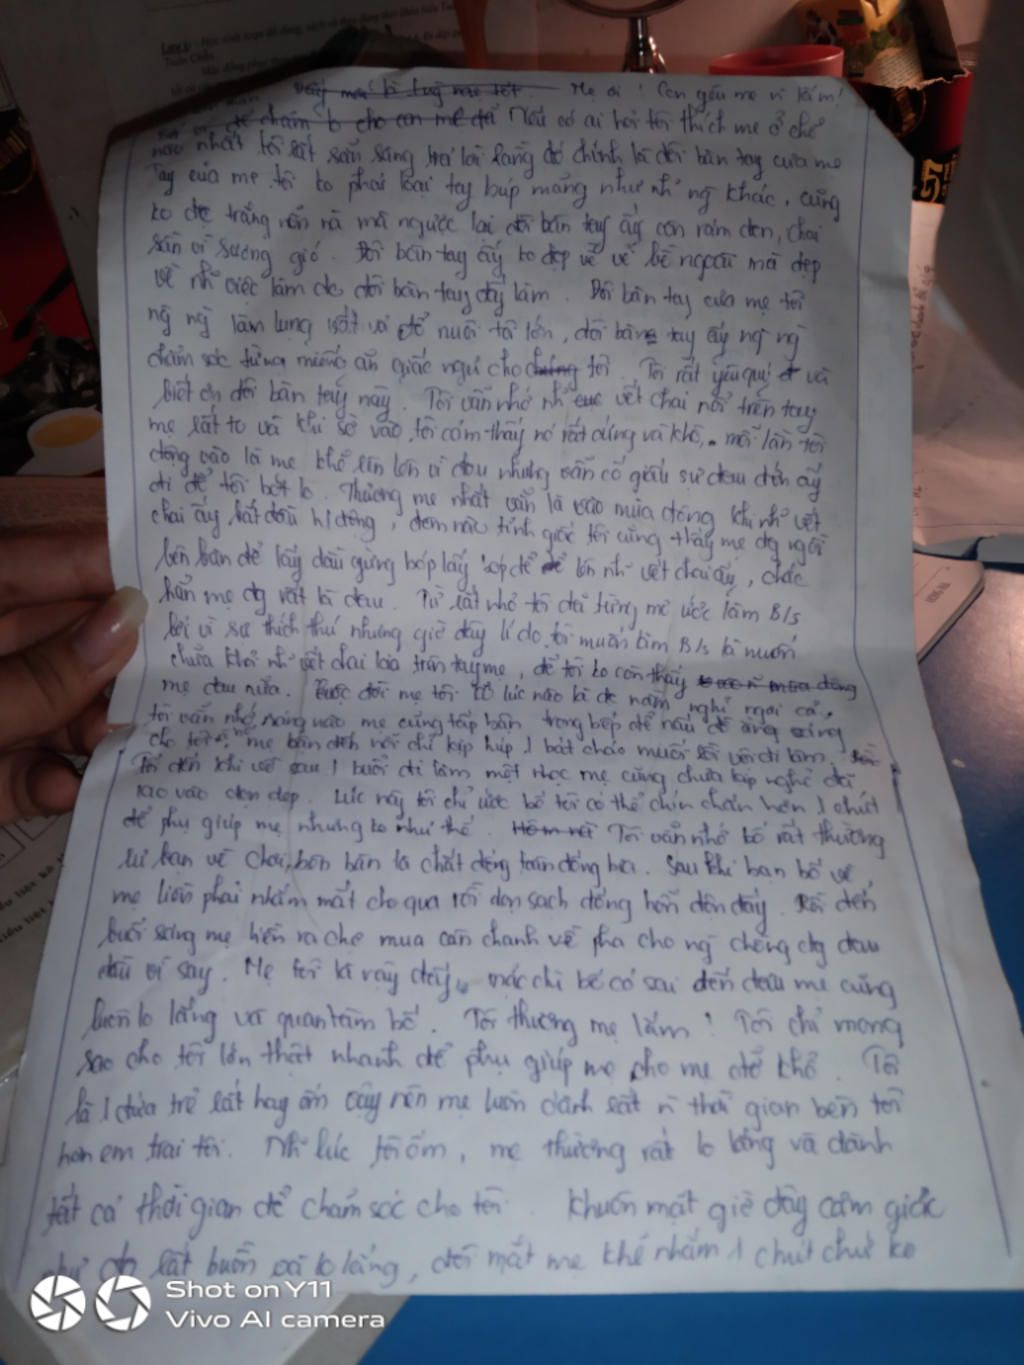 Mẹ ơi! Con yêu mẹ n lắm!
Nếu có ai hỏi tôi thích mẹ ở chỗ
nào nhất tôi rất sẵn sàng trả lời rằng đó chính là đôi bàn tay của mẹ
Tay của mẹ tôi ko phải loại tay búp măng như nh~ ng khác, cũng
ko đc trắng nõn nà mà ngược lại đôi bàn tay ấy còn rám đen, chai
sần vì sương gió. Đôi bàn tay ấy ko đẹp về vẻ bề ngoài mà đẹp
về nh~ việc làm do đôi bàn tay ấy làm. Đôi bàn tay của mẹ tôi
làm lụng vất vả để nuôi tôi lớn, đôi bàn tay ấy
chăm sóc từng miếng ăn giấc ngủ cho tôi. Tôi rất yêu quí và
biết ơn đôi bàn tay này. Tôi vẫn nhớ nh~ cục vết chai nổi trên tay
mẹ rất to và khi sờ vào, tôi cảm thấy nó rất cứng và khô, mỗi lần tôi
động vào là mẹ khẽ lên vì đau nhưng vẫn cố giấu sự đau đớn ấy
đi để tôi bớt lo. Thương mẹ nhất vẫn là vào mùa đông khi nh~ vết
chai ấy bắt đầu, đêm nào tỉnh giấc tôi cũng thấy mẹ đg ngồi
bên bàn để lấy dầu gừng bóp lấy bóp để lên nh~ vết chai ấy, chắc
hẳn mẹ đg rất là đau. Từ rất nhỏ tôi đã từng mơ ước làm B/s
bởi vì sự thích thú nhưng giờ đây lí do tôi muốn làm B/s là muốn
chữa khỏi nh~ vết chai kia trên tay mẹ, để tôi ko còn thấy
mẹ đau nữa. Cuộc đời mẹ tôi có lúc nào là đc nằm nghỉ ngơi cả,
tôi vẫn nhớ sáng nào mẹ cũng tấp bận trong bếp để nấu đồ ăn sáng
cho tôi, mẹ bận đến nỗi chỉ kịp húp 1 bát cháo muối rồi vội đi làm.
Tôi đến khi về sau 1 buổi đi làm mệt nhọc mẹ cũng chưa kịp nghỉ đã
lao vào dọn dẹp. Lúc này tôi chỉ ước bố tôi có thể chín chắn hơn 1 chút
để phụ giúp mẹ nhưng ko như thế. Tôi vẫn nhớ bố rất thường
rủ bạn về chơi, bên bàn là chất đống toàn đống bia. Sau khi bạn bố về
mẹ liền phải nhắm mắt cho qua rồi dọn sạch đống hỗn độn đấy. Rồi đến
buổi sáng mẹ liền ra chợ mua cân chanh về pha cho ng chồng đg đau
đầu vì say. Mẹ tôi là vậy đấy, mặc dù bố có sai đến đâu mẹ cũng
luôn lo lắng và quan tâm bố. Tôi thương mẹ lắm! Tôi chỉ mong
sao cho tôi lớn thật nhanh để phụ giúp mẹ, cho mẹ đỡ khổ. Tôi
là 1 đứa trẻ rất hay ốm vậy nên mẹ luôn dành rất n thời gian bên tôi
hơn em trai tôi. Nh~ lúc tôi ốm, mẹ thường rất lo lắng và dành
tất cả thời gian để chăm sóc cho tôi. Khuôn mặt giờ đây cảm giác
như rất buồn và lo lắng, đôi mắt mẹ khẽ nhắm 1 chút chứ ko
Shot on Y11
Vivo AI camera